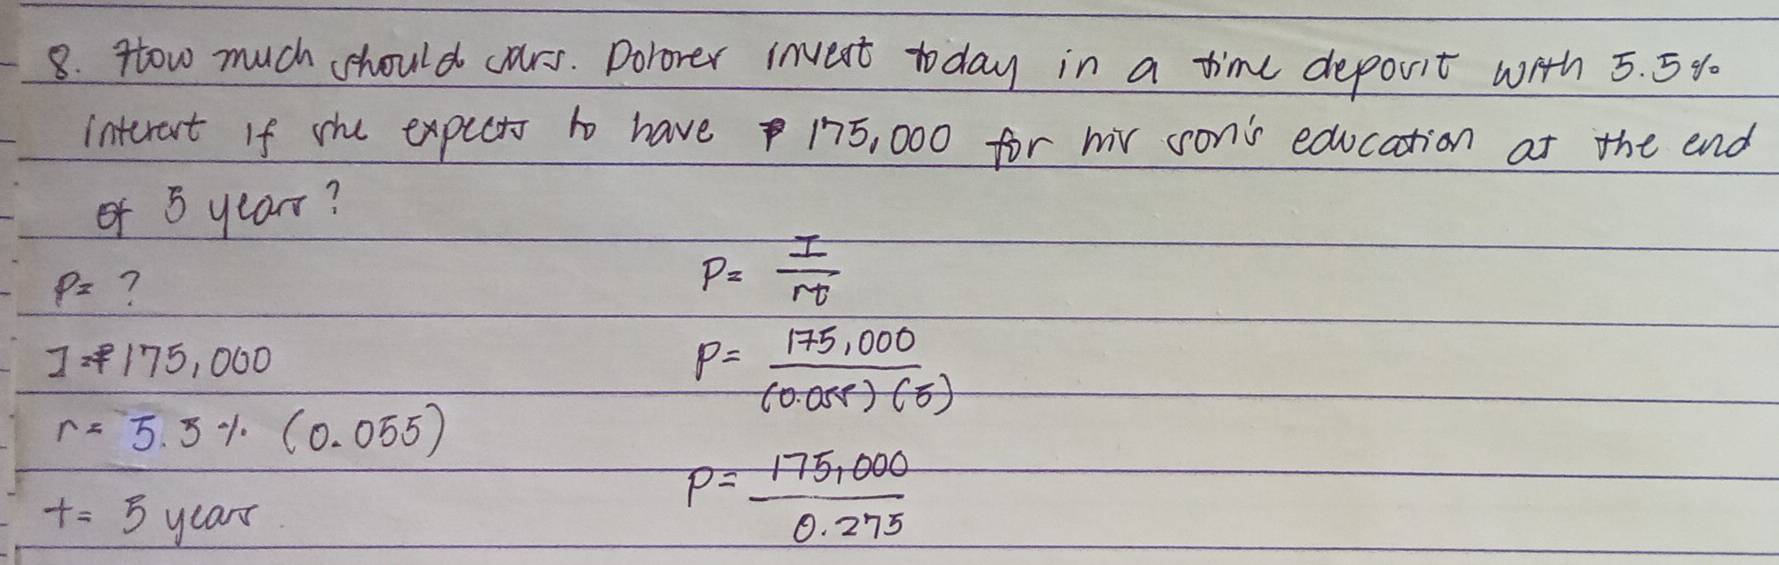 8. How much should Mrs. Dolores invest today in a time deposit with 5.5%
interest if she expects to have ₱ 175,000 for his son's education at the end
of 5 years?
P= ?
P= I/rt
I=₱175,000
P= 175,000/(0.055)(5)
r= 5.5% (0.055)
P= 175,000/0.275
t= 5 years